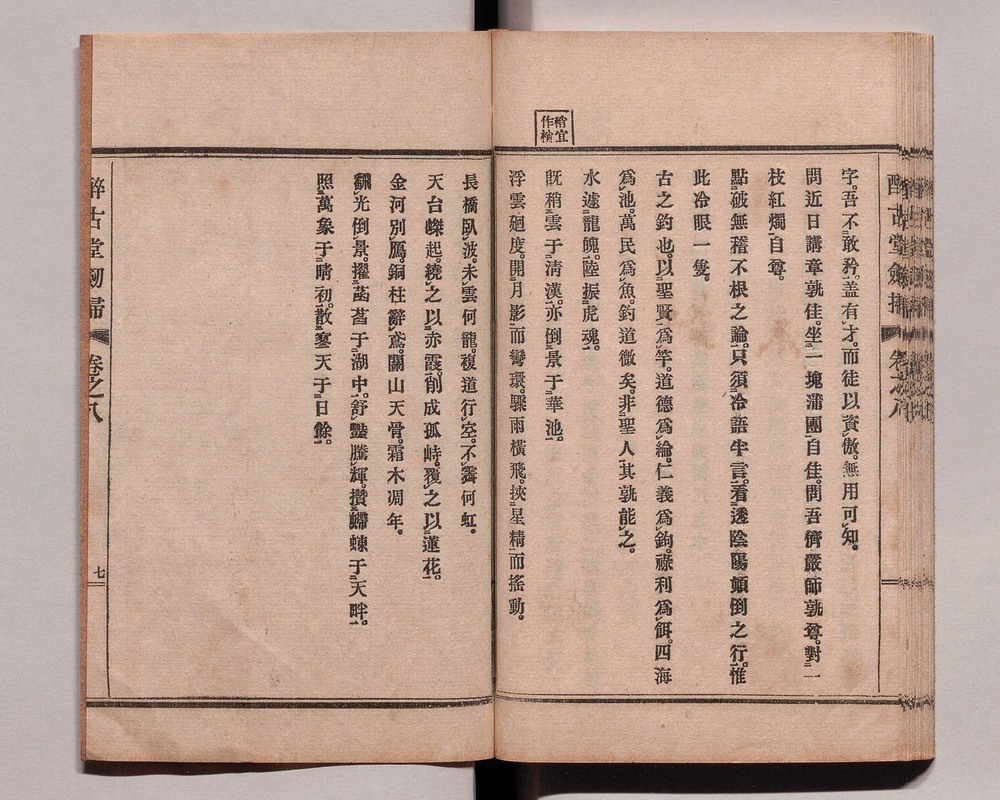 稍宜
作梢
字。吾不敢矜。盖有才。而徒以資傲。無用可知。
問近日講章孰佳。坐一塊蒲團自佳。問吾儕嚴師孰尊。對一
枝紅燭自尊。
點破無稽不根之論。只須冷語半言。看透陰陽顛倒之行。惟
此冷眼一隻。
古之釣也。以聖賢爲竿。道德爲綸。仁義爲鉤。祿利爲餌。四海
爲池。萬民爲魚。釣道微矣。非聖人其孰能之。
水遽龍魄。陸振虎魂。
既稍雲于淸漢。亦倒景于華池。
浮雲廻度。開月影而彎環。驟雨橫飛。挾星精而搖動。
長橋臥波。未雲何龍。複道行空。不霽何虹。
天台嶸起。繞之以赤霞。削成孤峙。覆之以蓮花。
金河別鴈。銅柱辭鳶。關山夭骨。霜木凋年。
翻光倒景。擢菡萏于湖中。舒豔騰輝。攢蝃蝀于天畔。
照萬象于晴初。散寥天于日餘。
醉古堂劒掃
卷之八
七